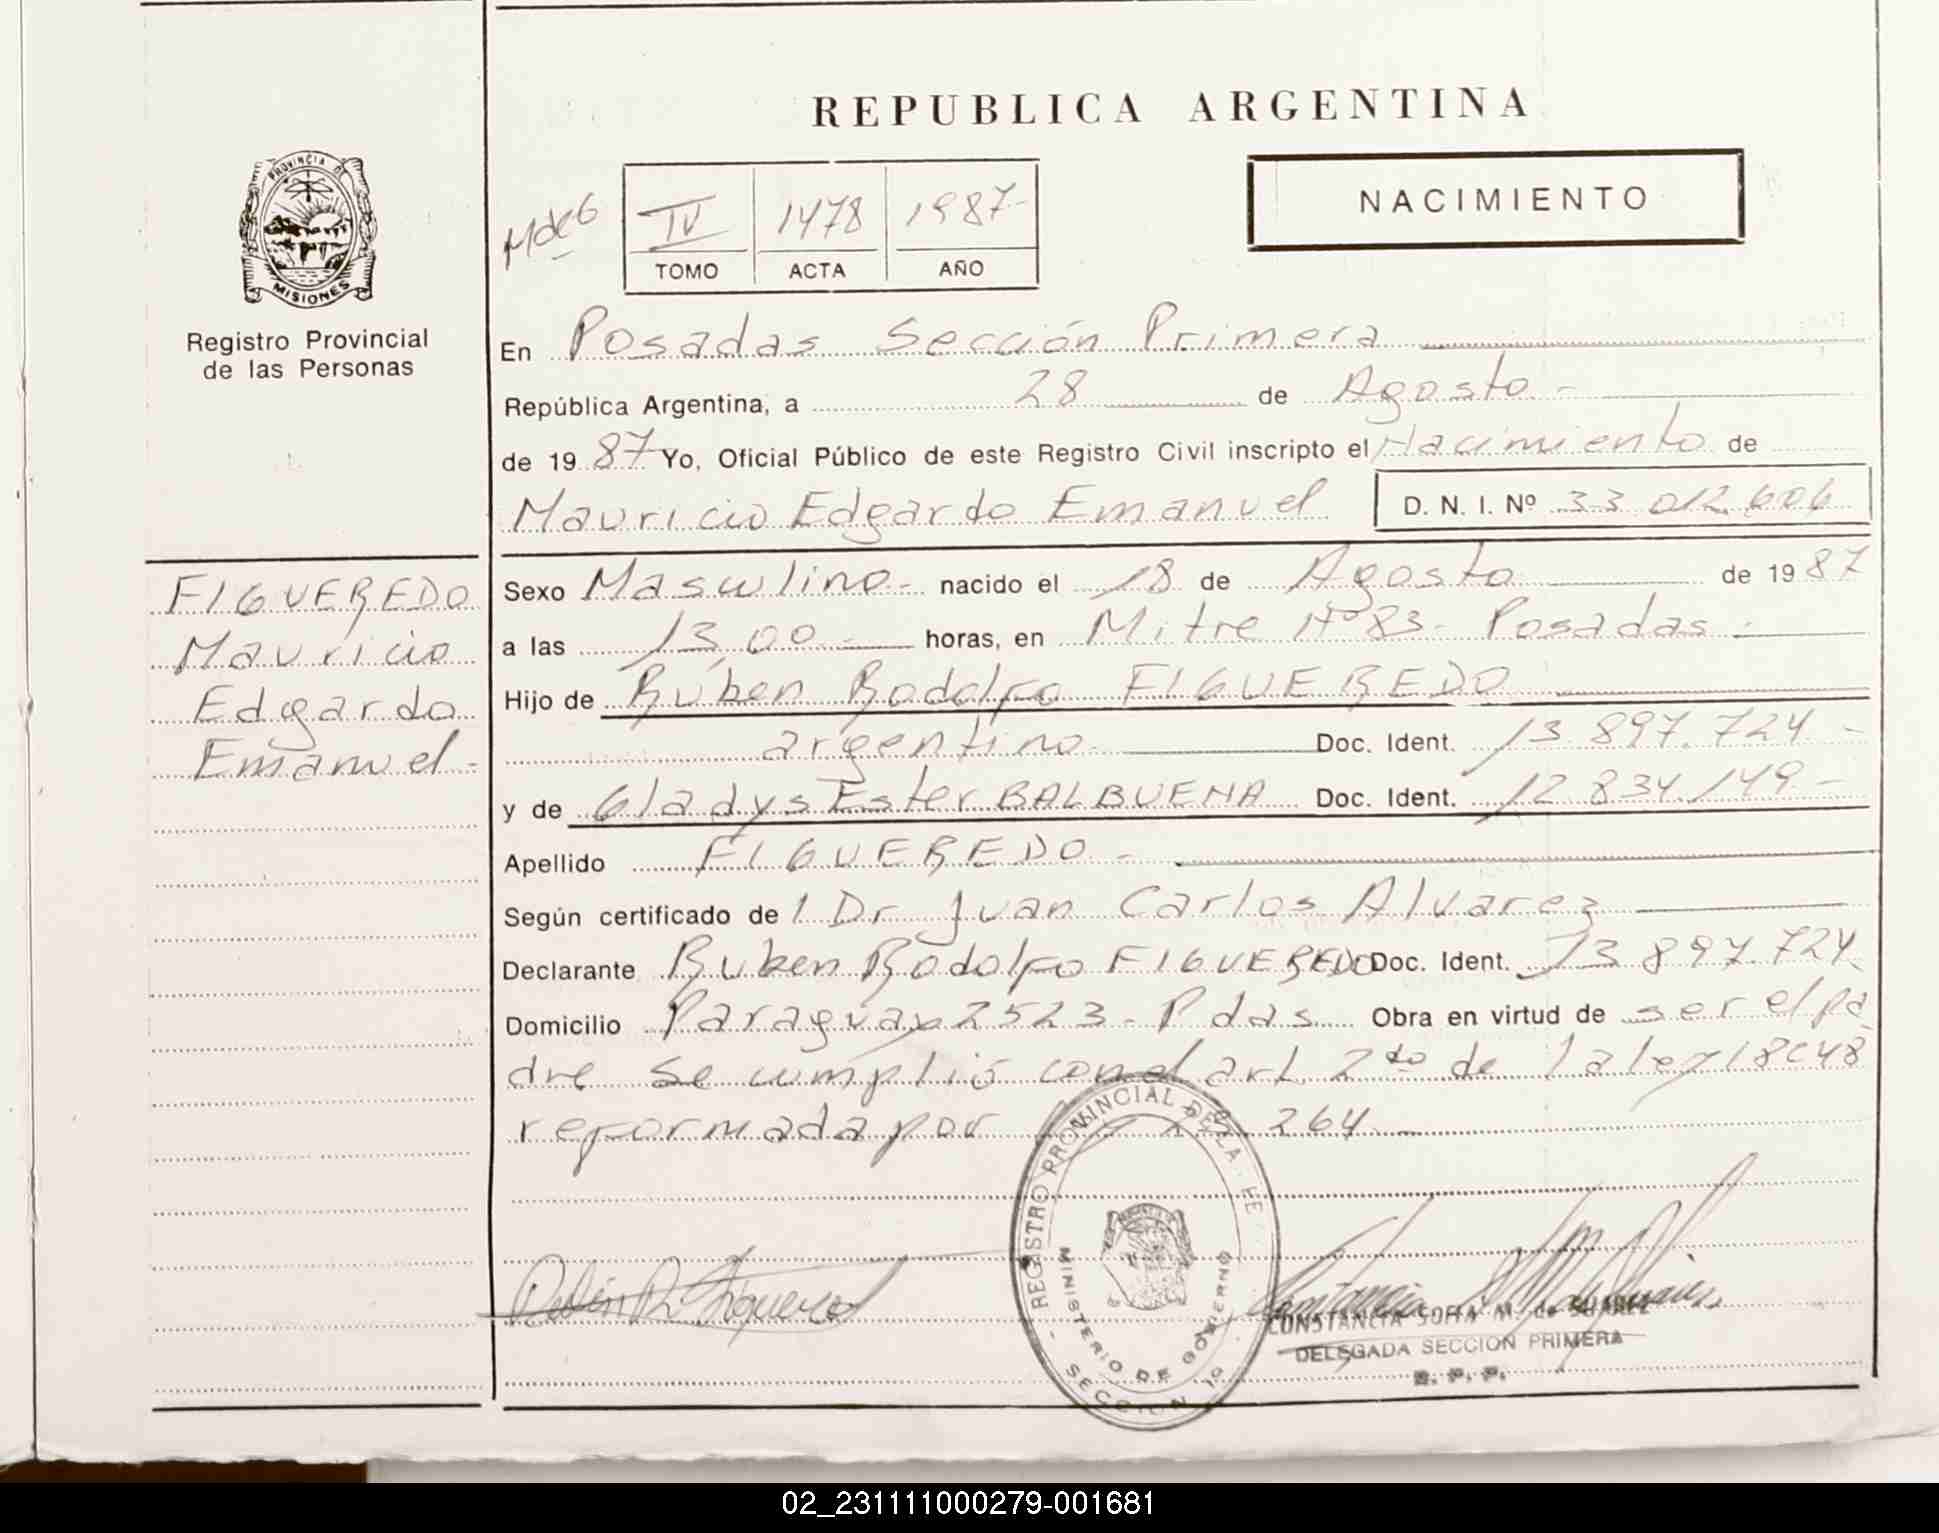 REPUBLICA ARGENTINA
PROVINCIA DE
MISIONES
Registro Provincial
de las Personas
MdeG
IV 1478 1987-
TOMO ACTA AÑO
NACIMIENTO
En Posadas Sección Primera
República Argentina, a 28 de Agosto -
de 19 87 Yo, Oficial Público de este Registro Civil inscripto el Nacimiento de
Mauricio Edgardo Emanuel D. N. I. Nº 33 012.606
FIGUEREDO
Mauricio
Edgardo
Emanuel -
Sexo Masculino - nacido el 18 de Agosto de 19 87
a las 13,00 - horas, en Mitre Nº 83 - Posadas -
Hijo de Rúben Rodolfo FIGUEREDO
argentino - Doc. Ident. 13 897.724 -
y de Gladys Ester BALBUENA Doc. Ident. 12 834.149 -
Apellido FIGUEREDO -
Según certificado de l Dr Juan Carlos Alvarez
Declarante Ruben Rodolfo FIGUEREDO Doc. Ident. 13 897.724
Domicilio Paraguay 2523 - Pdas Obra en virtud de ser el pa
dre Se cumplió con el art 2do de la ley 18248
reformada por 264 -
REGISTRO PROVINCIAL DE LA
MINISTERIO DE GOBIERNO
SECCION 1º
CONSTANCIA SOFIA M. de SUAREZ
DELEGADA SECCION PRIMERA
R. P. P.
02_231111000279-001681